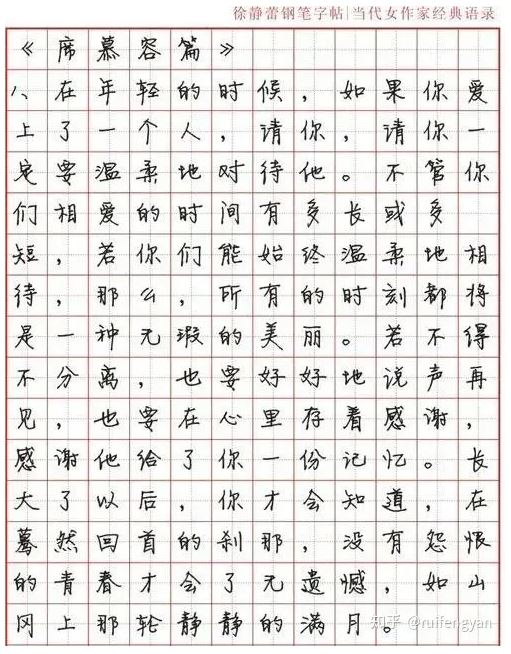 徐静蕾钢笔字帖|当代女作家经典语录
《席慕容篇》
1、在年轻的时候，如果你爱
上了一个人，请你，请你一
定要温柔地对待他。不管你
们相爱的时间有多长或多
短，若你们能始终温柔地相
待，那么，所有的时刻都将
是一种无瑕的美丽。若不得
不分离，也要好好地说声再
见，也要在心里存着感谢，
感谢他给了你一份记忆。长
大了以后，你才会知道，在
蓦然回首的刹那，没有怨恨
的青春才会了无遗憾，如山
冈上那轮静静的满月。
知乎 @ruifengyan